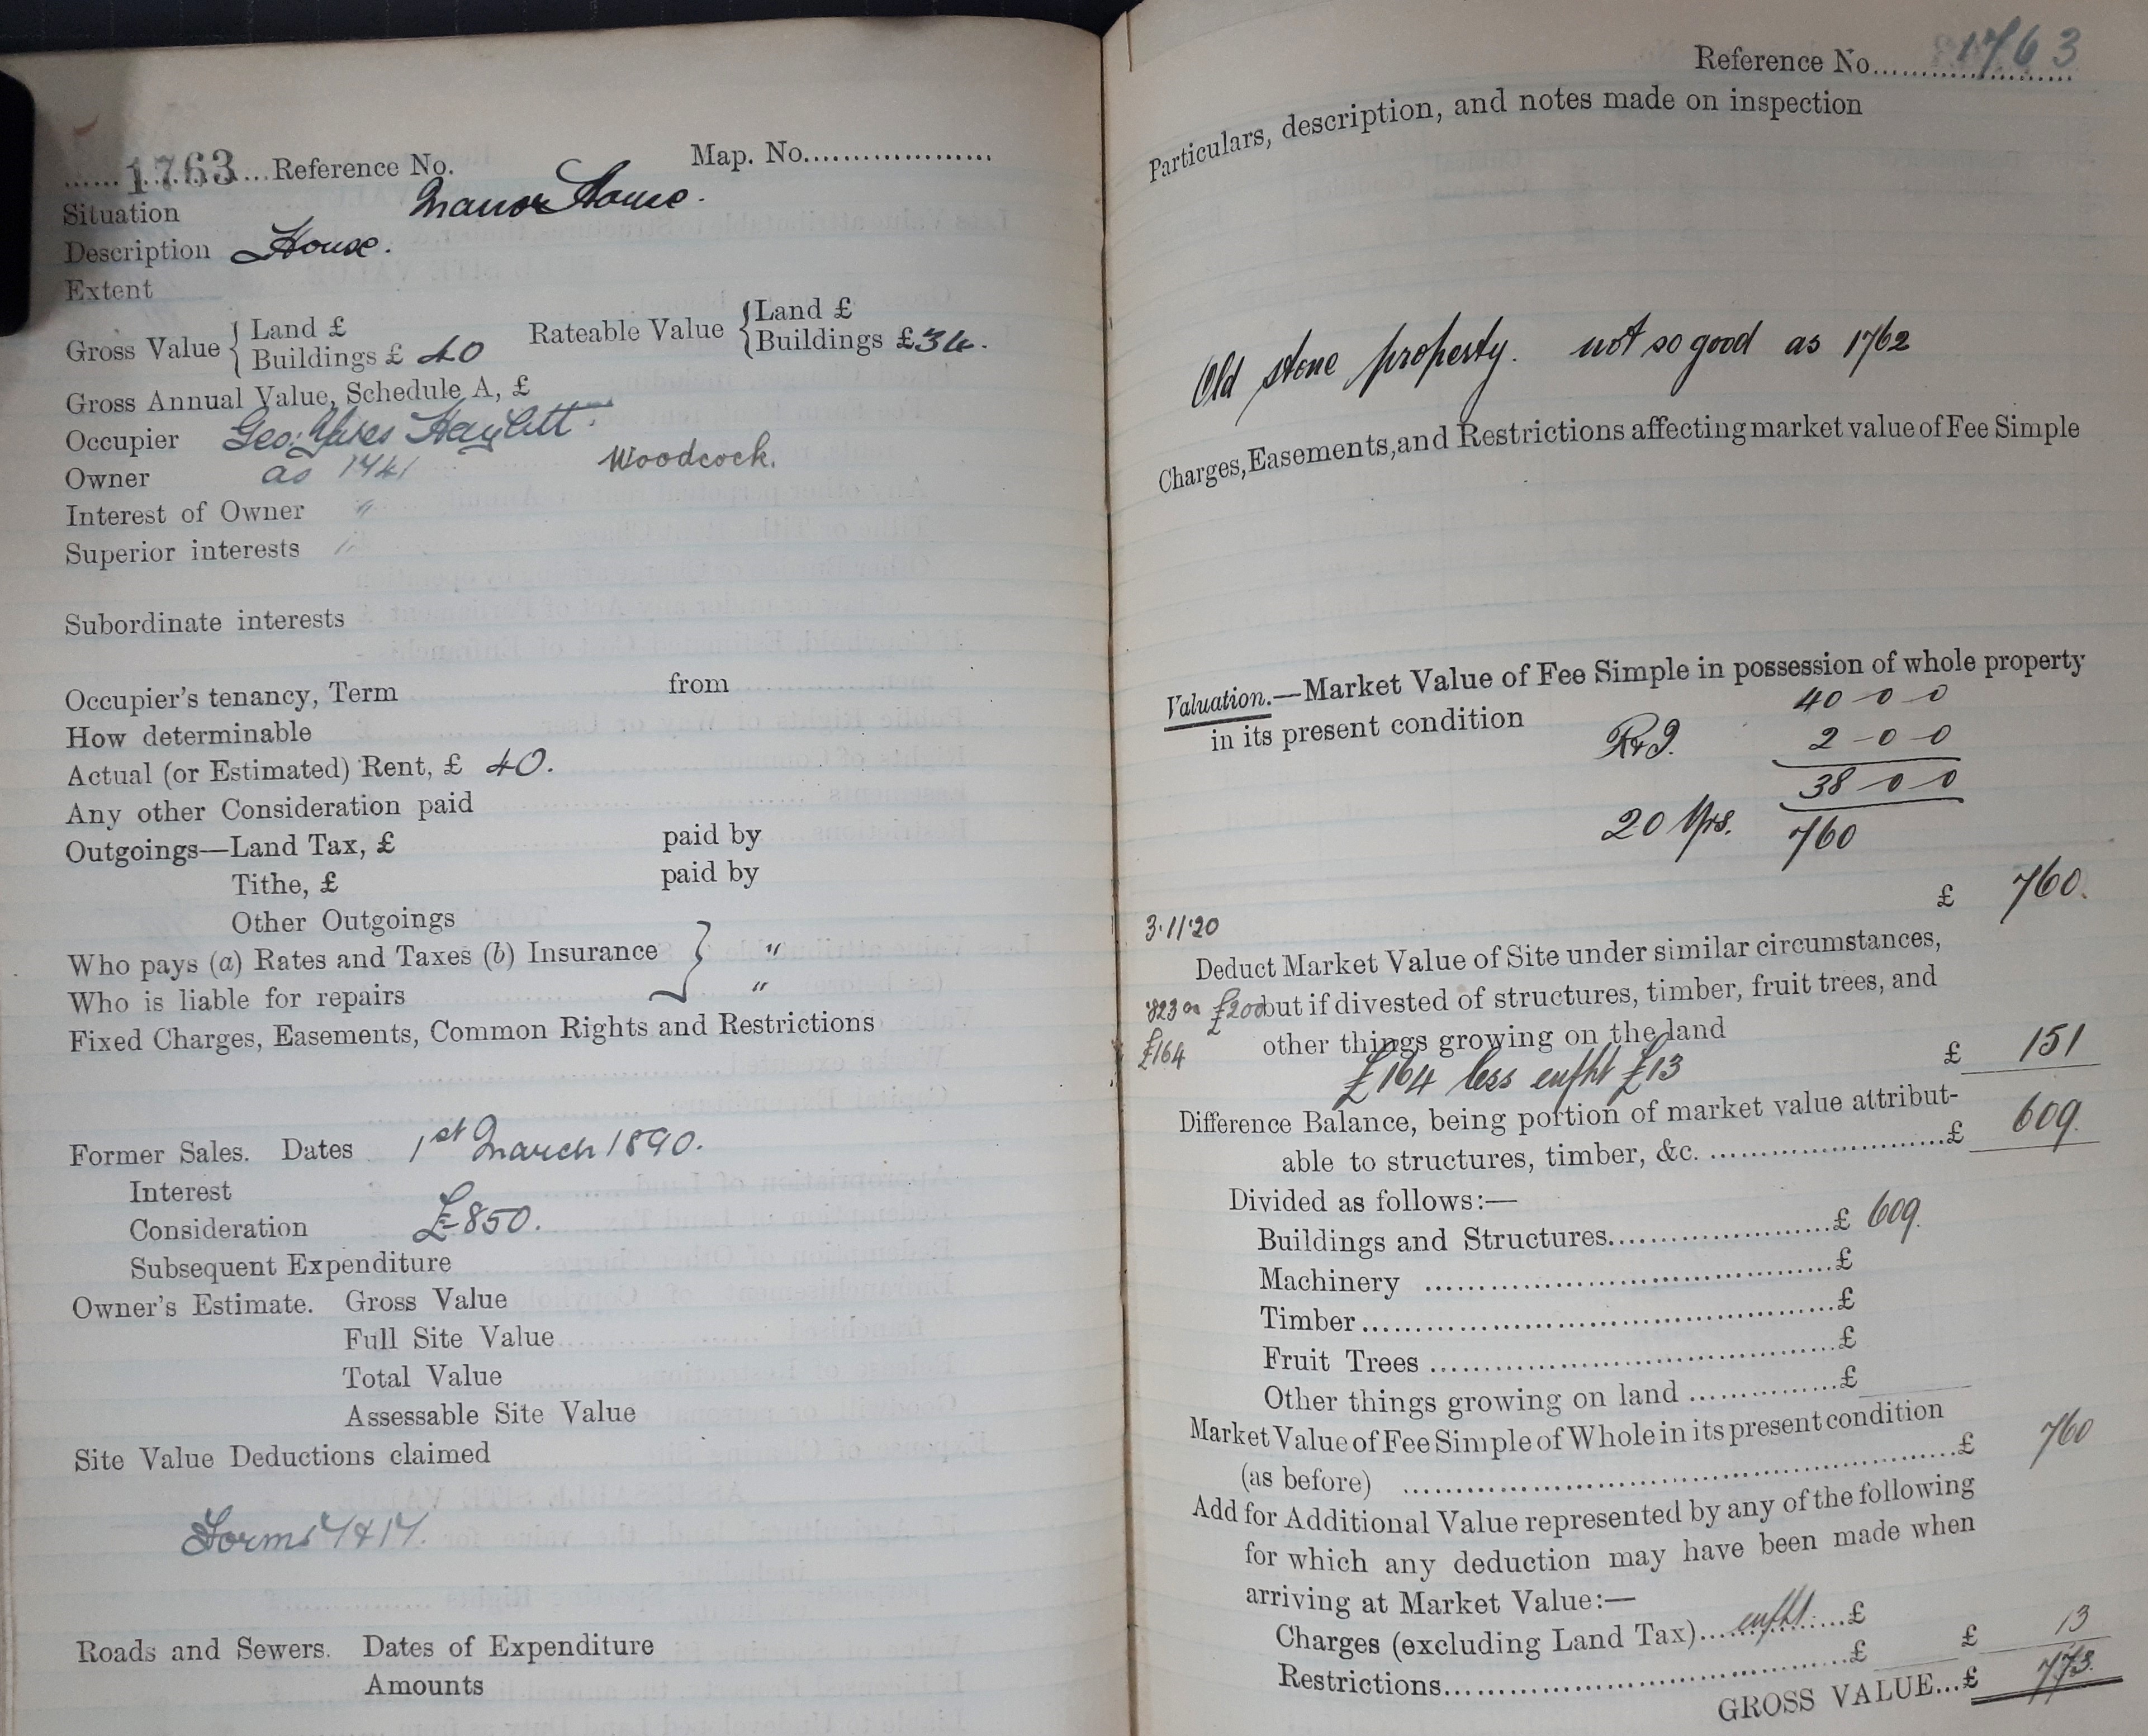 1763 Reference No. Map. No.
Situation Manor House.
Description House.
Extent
Gross Value { Land £ Rateable Value { Land £
Buildings £ 40 Buildings £ 34.
Gross Annual Value, Schedule A, £
Occupier Geo:
Owner as 1741 Woodcock.
Interest of Owner "
Superior interests "
Subordinate interests
Occupier's tenancy, Term from
How determinable
Actual (or Estimated) Rent, £ 40.
Any other Consideration paid
Outgoings—Land Tax, £ paid by
Tithe, £ paid by
Other Outgoings
Who pays (a) Rates and Taxes (b) Insurance } "
Who is liable for repairs "
Fixed Charges, Easements, Common Rights and Restrictions
Former Sales. Dates 1st March 1890.
Interest
Consideration £850.
Subsequent Expenditure
Owner's Estimate. Gross Value
Full Site Value
Total Value
Assessable Site Value
Site Value Deductions claimed
Forms 4 & 17.
Roads and Sewers. Dates of Expenditure
Amounts
Reference No. 1763
Particulars, description, and notes made on inspection
Old stone property. not so good as 1762
Charges, Easements, and Restrictions affecting market value of Fee Simple
Valuation.—Market Value of Fee Simple in possession of whole property
in its present condition 40-0-0
R&I. 2-0-0
38-0-0
20 Yrs. 760
£ 760.
3.11.20
Deduct Market Value of Site under similar circumstances,
£200 but if divested of structures, timber, fruit trees, and
£164 other things growing on the land £ 151
£164 less enfht £13
Difference Balance, being portion of market value attribut-
able to structures, timber, &c. £ 609.
Divided as follows:—
Buildings and Structures £ 609.
Machinery £
Timber £
Fruit Trees £
Other things growing on land £
Market Value of Fee Simple of Whole in its present condition
(as before) £ 760
Add for Additional Value represented by any of the following
for which any deduction may have been made when
arriving at Market Value:—
Charges (excluding Land Tax) enfht. £
Restrictions £ £ 13
GROSS VALUE...£ 773.